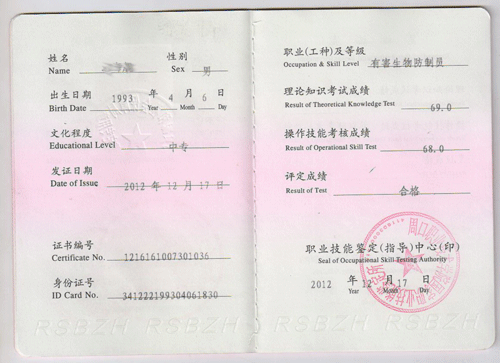 姓名 性别
Name Sex 男
出生日期 1993 年 4 月 6 日
Birth Date Year Month Day
文化程度
Educational Level 中专
发证日期
Date of Issue 2012 年 12 月 17 日
证书编号
Certificate No. 1216161007301036
身份证号
ID Card No. 341222199304061830
RSBZH RSBZH
职业(工种)及等级
Occupation & Skill Level 有害生物防制员
理论知识考试成绩
Result of Theoretical Knowledge Test 69.0
操作技能考核成绩
Result of Operational Skill Test 68.0
评定成绩
Result of Test 合格
职业技能鉴定(指导)中心(印)
Seal of Occupational Skill Testing Authority
2012 年 12 月 17 日
Year Month Day
RSBZH RSBZH